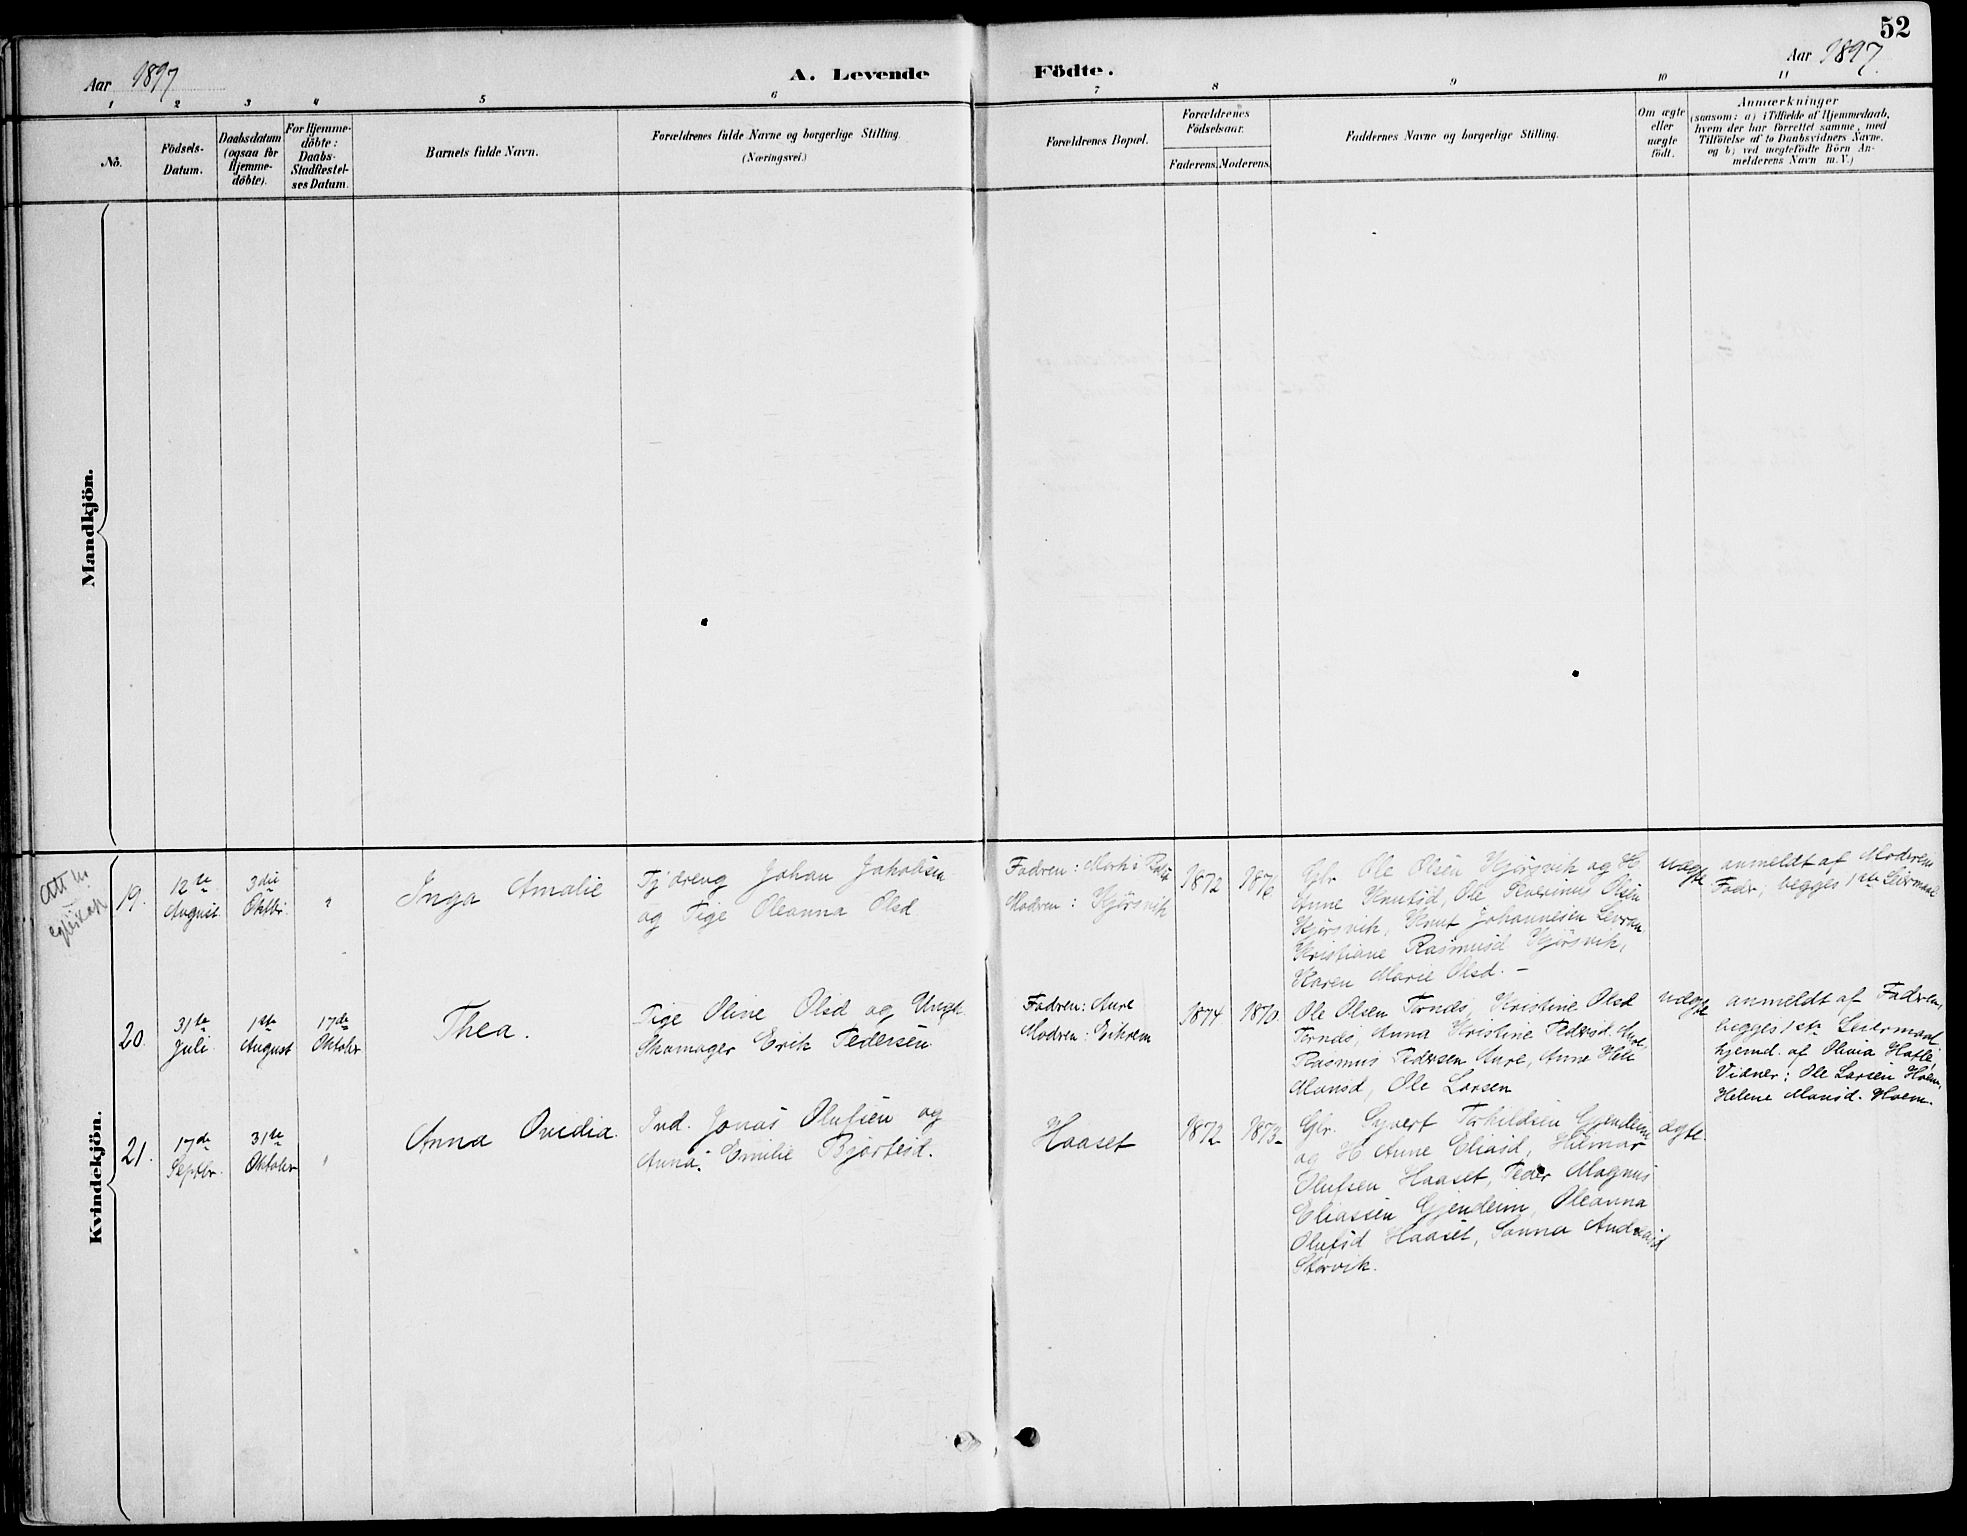 52
Aar 1897
A. Levende Födte.
Aar 1897
1 2 3 4 5 6 7 8 9 10 11
No.
Födsels-
Datum.
Daabsdatum
(ogsaa for
Hjemme-
döbte).
For Hjemme-
döbte:
Daabs-
Stadfestel-
ses Datum.
Barnets fulde Navn.
Forældrenes fulde Navne og borgerlige Stilling
(Næringsvei.)
Forældrenes Bopæl.
Forældrenes
Födselsaar.
Faderens.
Moderens.
Faddernes Navne og borgerlige Stilling.
Om ægte
eller
uægte
født.
Anmærkninger
(saasom: a) i Tilfælde af Hjemmedaab,
hvem der har forrettet samme, med
Tilföielse af to Daabsvidners Navne.
og b) ved uægtefödte Börn An-
melderens Navn m. V.)
Mandkjön.
Kvindekjön.
Att.
19.
12te
August
3die
Oktbr
"
Inga Amalie
Tj dreng Johan Jakobsen
og Pige Oleanna Olsd
Fadren:
Modren: Kjørsvik
1872
1876
Gbr Ole Olsen Kjørsvik og H
Anne Knutsd, Ole Severinus Olsen
Kjørsvik, Knut Johannesen
Kristiane Rasmusd Kjørsvik,
Karen Marie Olsd. –
uægte
anmeldt af Moderens
Fader; begges 1ste Leiermaal
20.
31te
Juli
1ste
August
17de
Oktober
Thea.
Pige Oline Olsd og Ungk
Skomager Erik Pedersen
Fadren: Aure
Modren: Eikrem
1874
1870
Ole Olsen Tornes, Kristine Olsd
Tornes, Anna Kristine Pedersd Aure,
Rasmus Pedersen Aure, Anne
Monsd, Ole Larsen
uægte
anmeldt af Fadren,
begges 1ste Leiermaal
hjemd. af Olivia
Vidner: Ole Larsen Hoem,
Helene Monsd. Hoem.
21.
17de
Septbr.
31te
Oktober
"
Anna Ovidia.
Ind. Jonas Olufsen og
Anna Emilie
Haaset
1872
1873
Gbr. Syvert Torkildsen Gjendem
og H Anne Eliasd, Hilmar
Olufsen Haaset, Peder Magnus
Eliassen Gjendem, Oleanna
Olufsd Haaset, Sanna Andreasd
Storvik.
ægte.